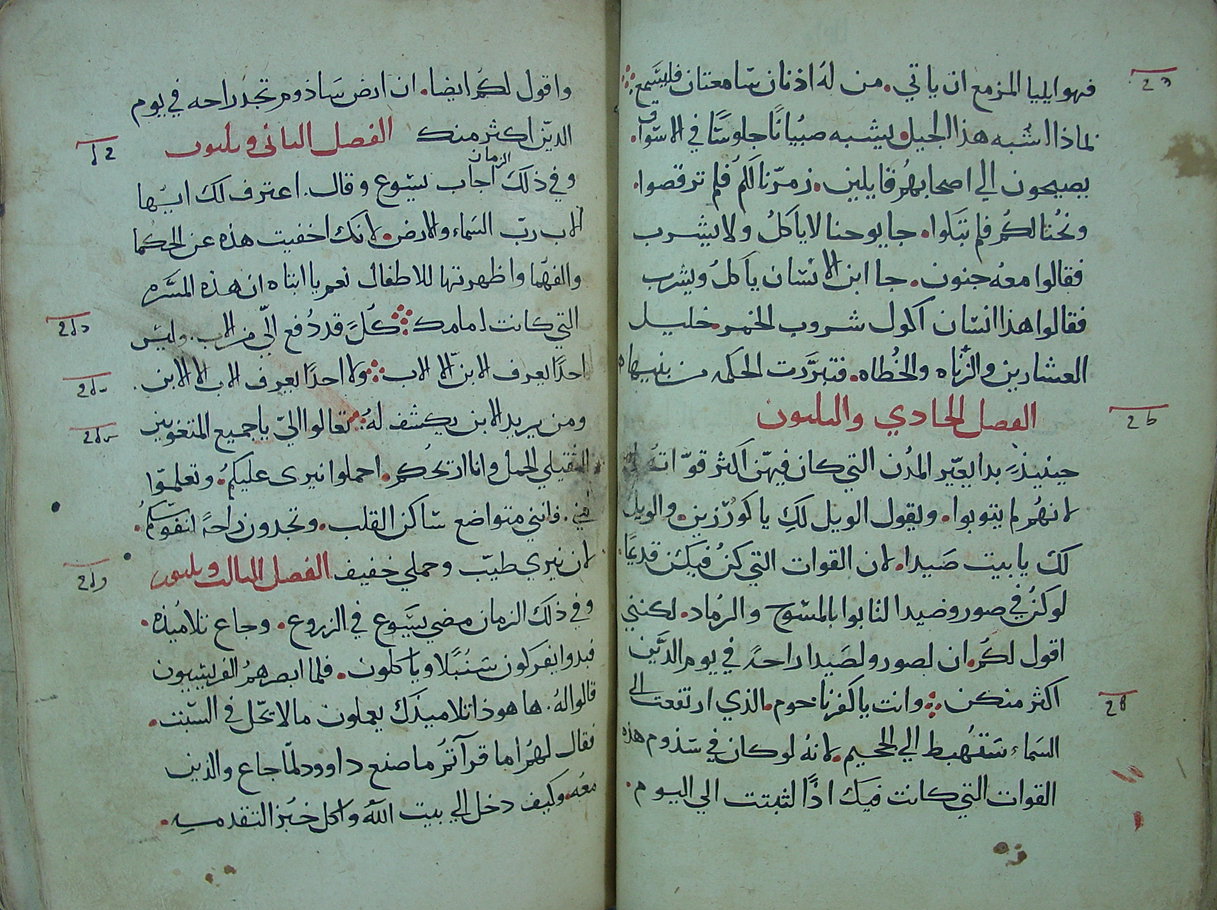 فهو ايليا المزمع ان ياتي. من لهُ اذنان سَامعتان فليسَمع
لماذا اشبه هذا الجيل يشبه صبيانًا جلوسًا في الاسواق
يصيحون الي اصحابهم قايلين. زمرّنا لكم فلم ترقصوا.
ونحُنا لكم فلم تبَكوا. جا يوحنا لا ياكلُ ولا يشرب
فقالوا معهُ جنون. جا ابن الانسَان ياكلُ ويشرب
فقالوا هذا انسَان اكول شروب الخمر. خليل
العشارين والزناه والخُطاه. فتبرَّرت الحكمه من بنيها
الفصل الحادي والثلثون
حينيذٍ بدا يعيّر المدن التي كان فيهنّ اكثر قوّاته
لانهُم لم يتوبوا. ويقول الويل لكِ يا كورَزين. والويل
لك يا بيت صَيدا. لان القوات التي كنَّ فيكن قديمًا
لو كنَّ في صور وصَيدا لتابوا بالمسُوح والرمُاد. لكنني
اقول لكُم. ان لصور ولصَيدا راحةً في يوم الديَّن
اكثر منكن. وانت يا كفرناحوم. الذي ارتفعت الي
السَماء سَتهُبط الي الجحيم. لانهُ لو كان في سَذوم هذه
القوات التي كانت فيك اذًا لثبتت الي اليوم.
واقول لكُم ايضا. ان ارض سَاذوم تجد راحه في يوم
الديّن اكثر منك الفصل الثاني وثلثون
وفي ذلك الزمان اجاب يسَوع وقال. اعترف لك ايهُا
الاب ربّ السَماء والارض. لانك اخفيت هذه عن الحكما
والفهمَا واظهرتها للاطفال نعم يا ابتاه ان هذه المسَرّه
التي كانت امامك كلَُ قد دُفع الّي من الاب. وليَس
احدًا يعرف الابن الاّ الاب ولا احدًا يعرف الاب الا الابن.
ومن يريد الابن يكشف لهُ تعالوا اليّ يا جميع المتعوبين
الثقيلي الحمل وانا اريحُكم. احملوا نيري عليكُم. وتعلمّوا
مني. فانني متواضع سَاكن القلب. وتجدون راحةً لنفوسَكُم.
لان نيري طيبّ وحملي خفيف الفصل الثالث وثلثون
وفي ذلك الزمان مضي يسَوع في الزروع. وجاع تلاميُذه.
فبدوا يفركون سَنُبلا وياكلون. فلما ابصرهمُ الفريسيون
قالوا لهُ. ها هوذا تلاميدك يعملون ما لا يحَل في السَبّت.
فقال لهمُ اما قراَتمُ ما صنع داوود لمّا جاع والذين
معهُ. وكيف دخل الي بيت الله واكل خبُز التقدمه.